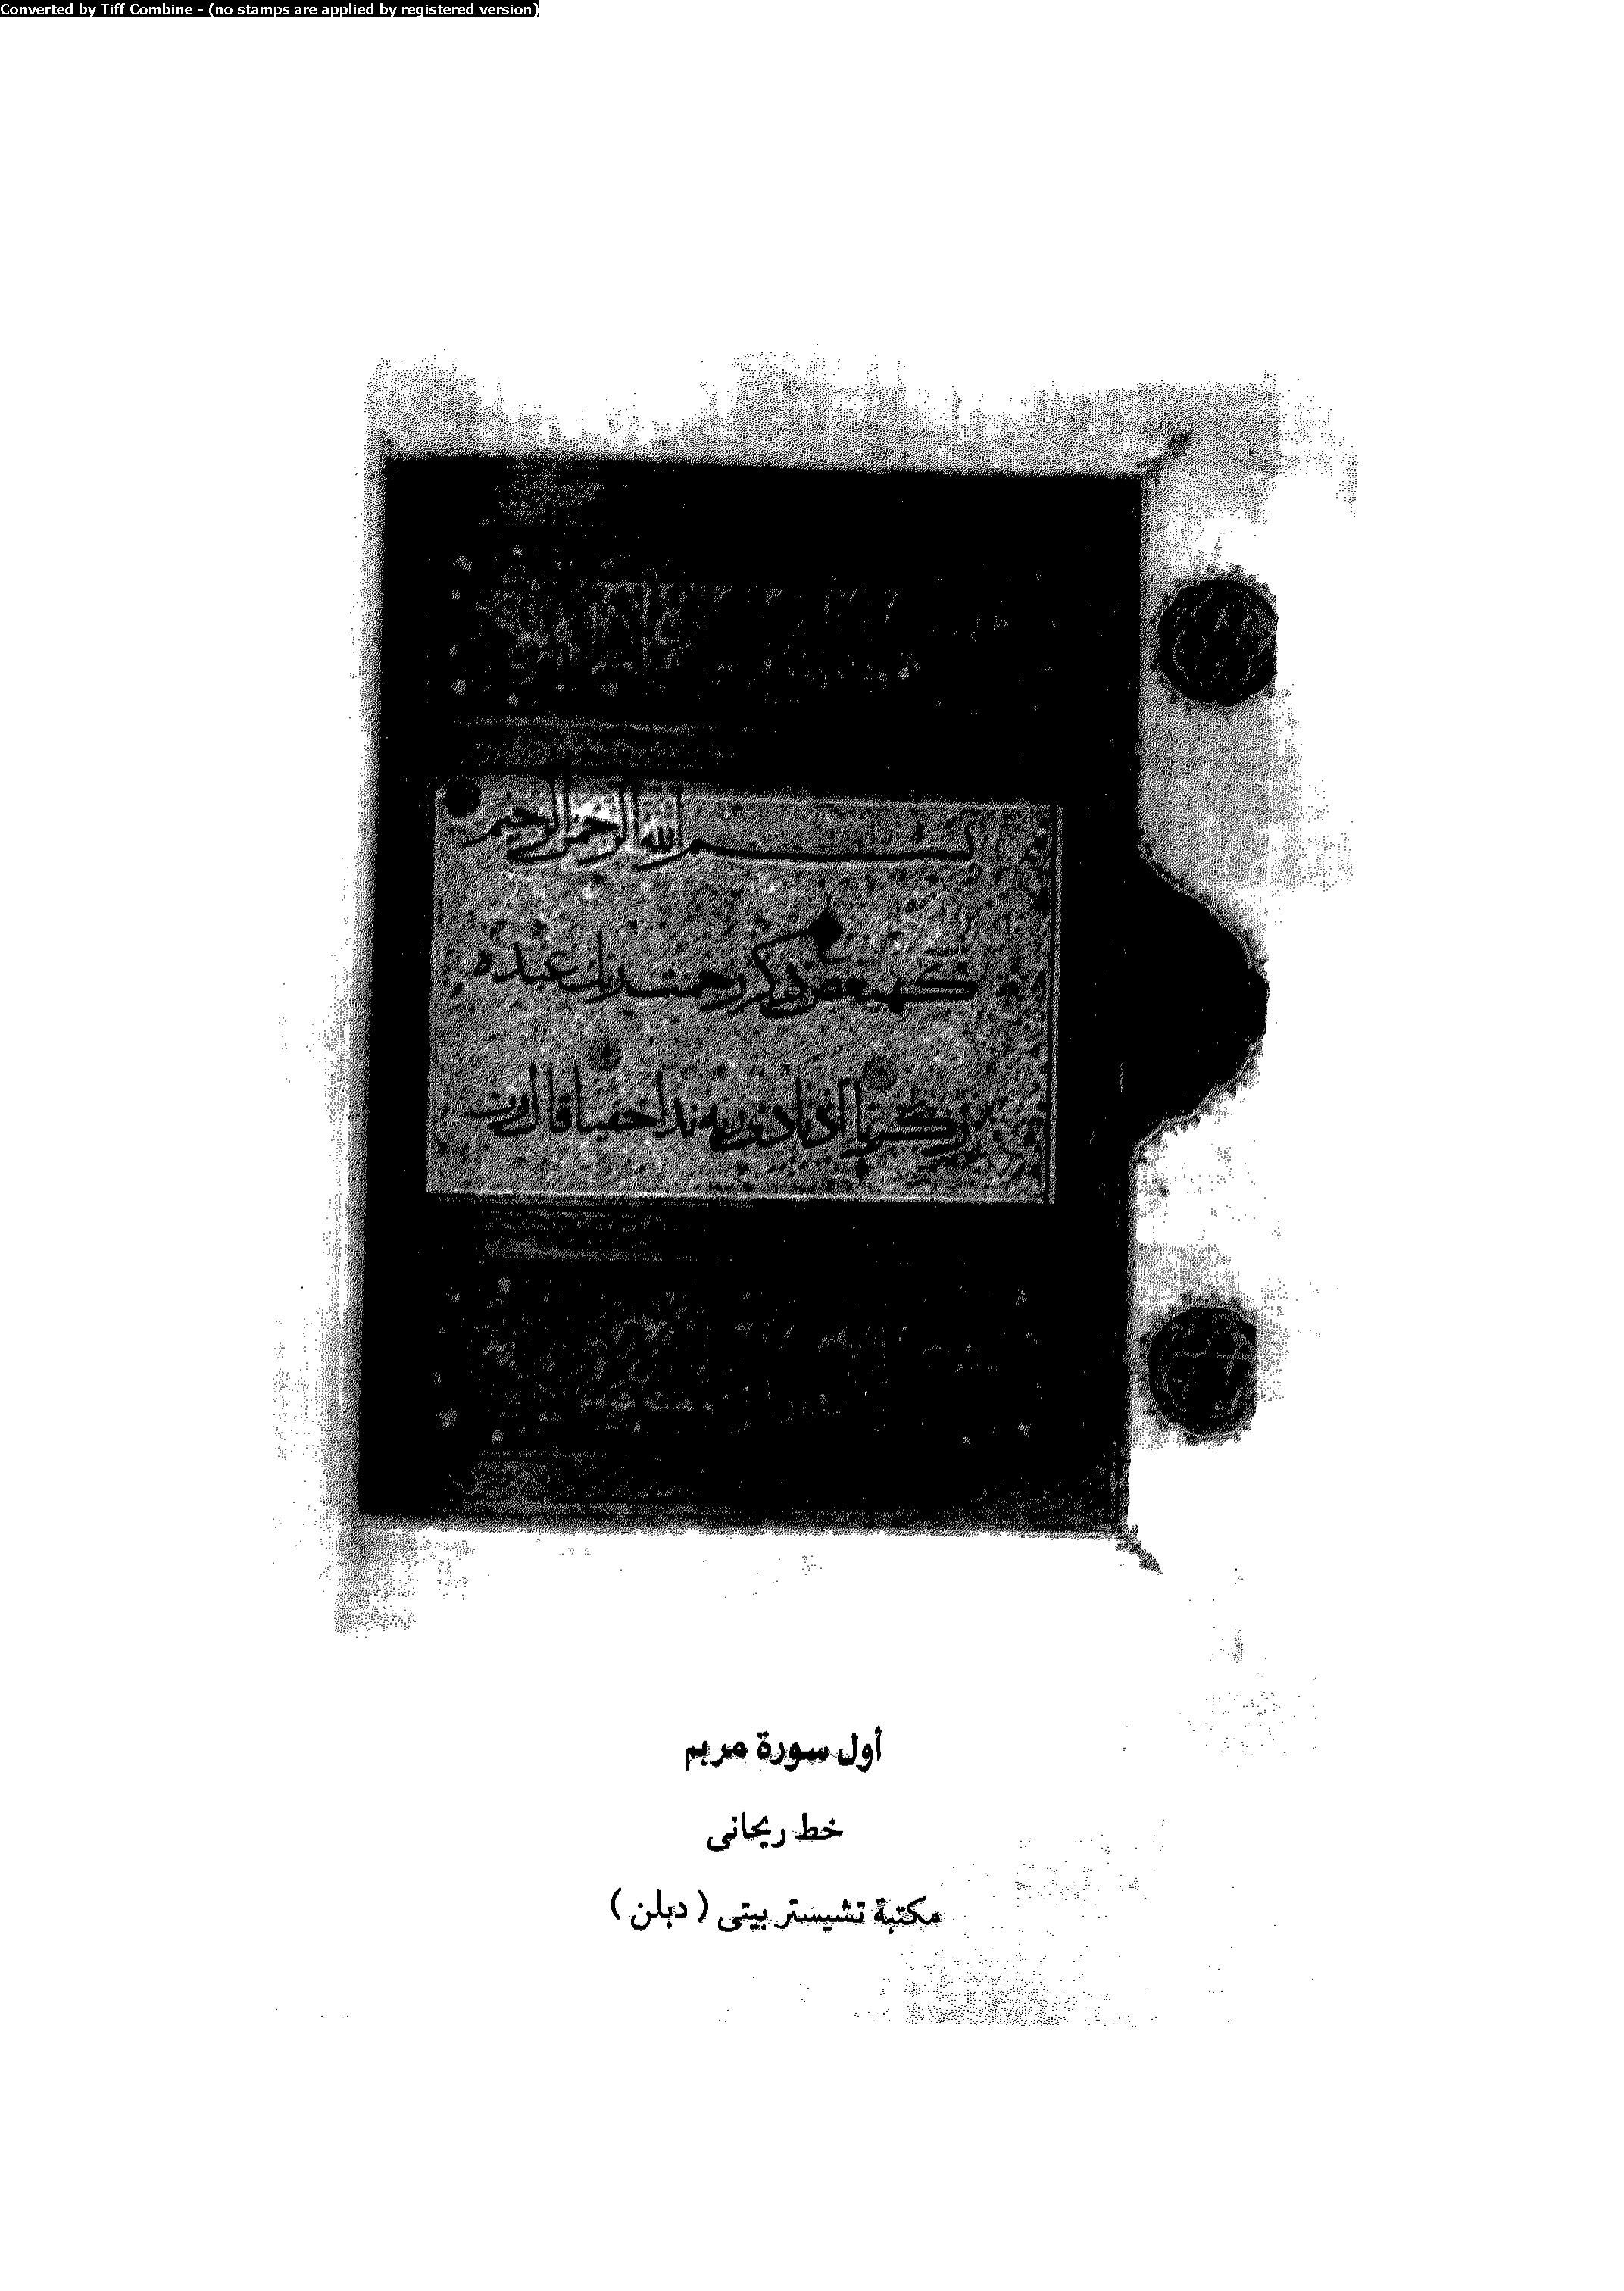 Converted by Tiff Combine - (no stamps are applied by registered version)
بسم الله الرحمن الرحيم
كهيعص ذكر رحمت ربك عبده
زكريا اذ نادى ربه نداء خفيا قال رب
أول سورة مريم
خط ريحانى
مكتبة تشيستر بيتى ( دبلن )